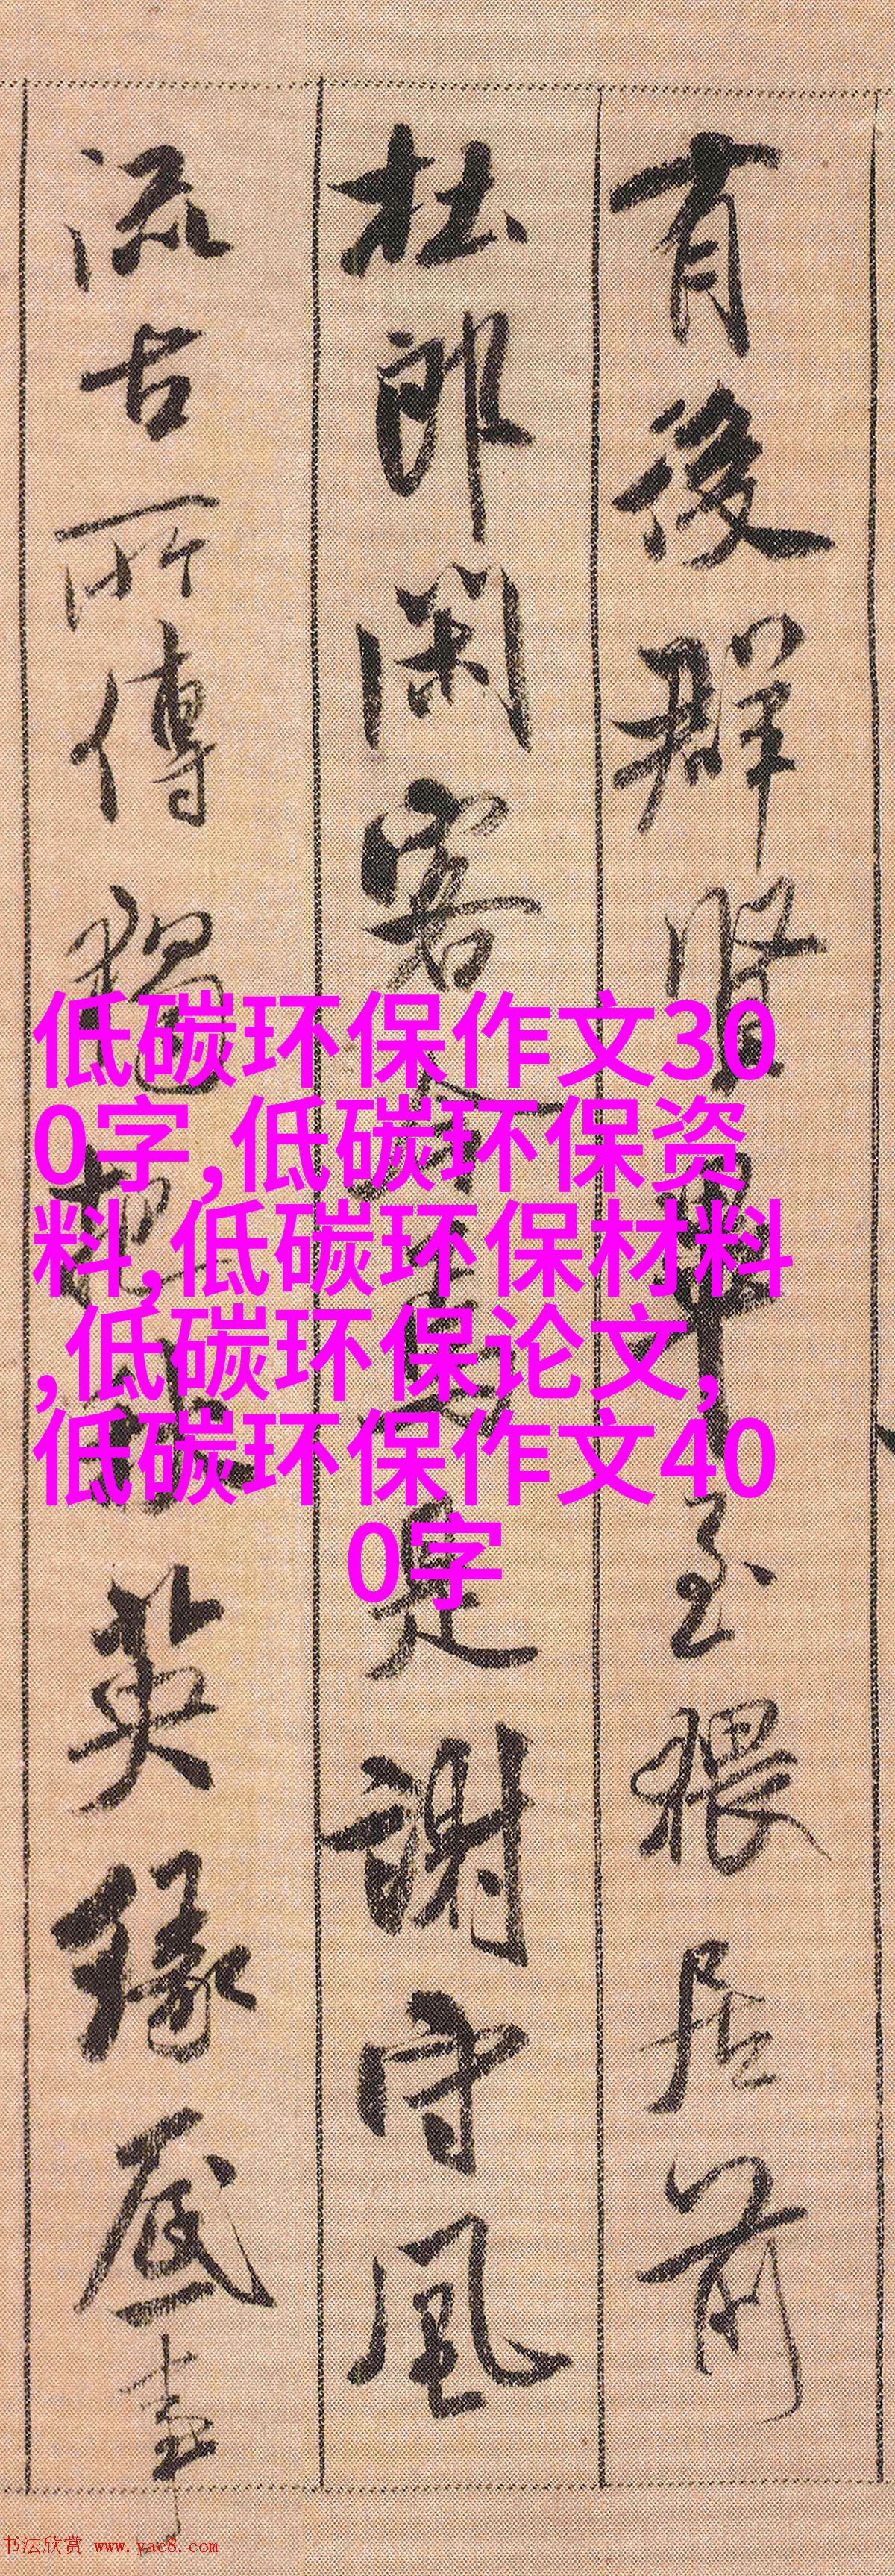 有後群賢畢至猥居前
杜郎闲客今焉是謝守風
流古所傳獨把秋英緣底事
低碳环保作文30
0字,低碳环保资
料,低碳环保材料
,低碳环保论文,
低碳环保作文40
0字
书法欣赏 www.yac8.com